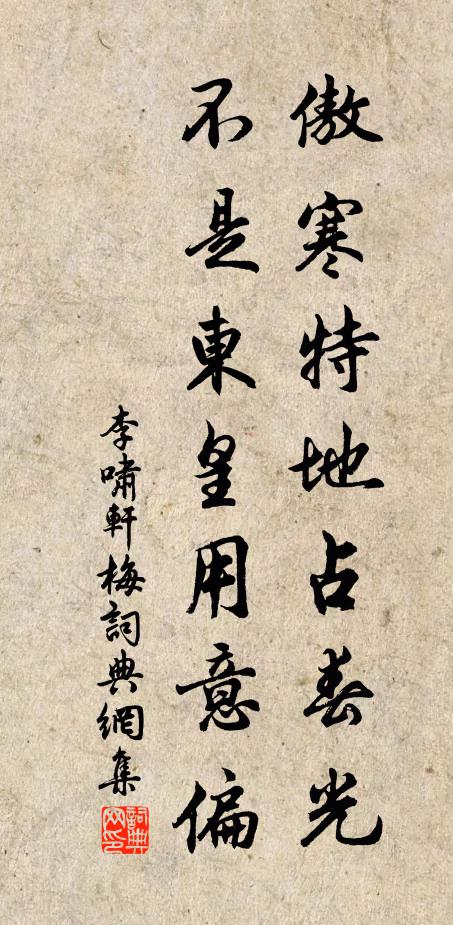 傲寒特地占春光
不是東皇用意偏
李嘯軒梅詞典網集
詞典网印